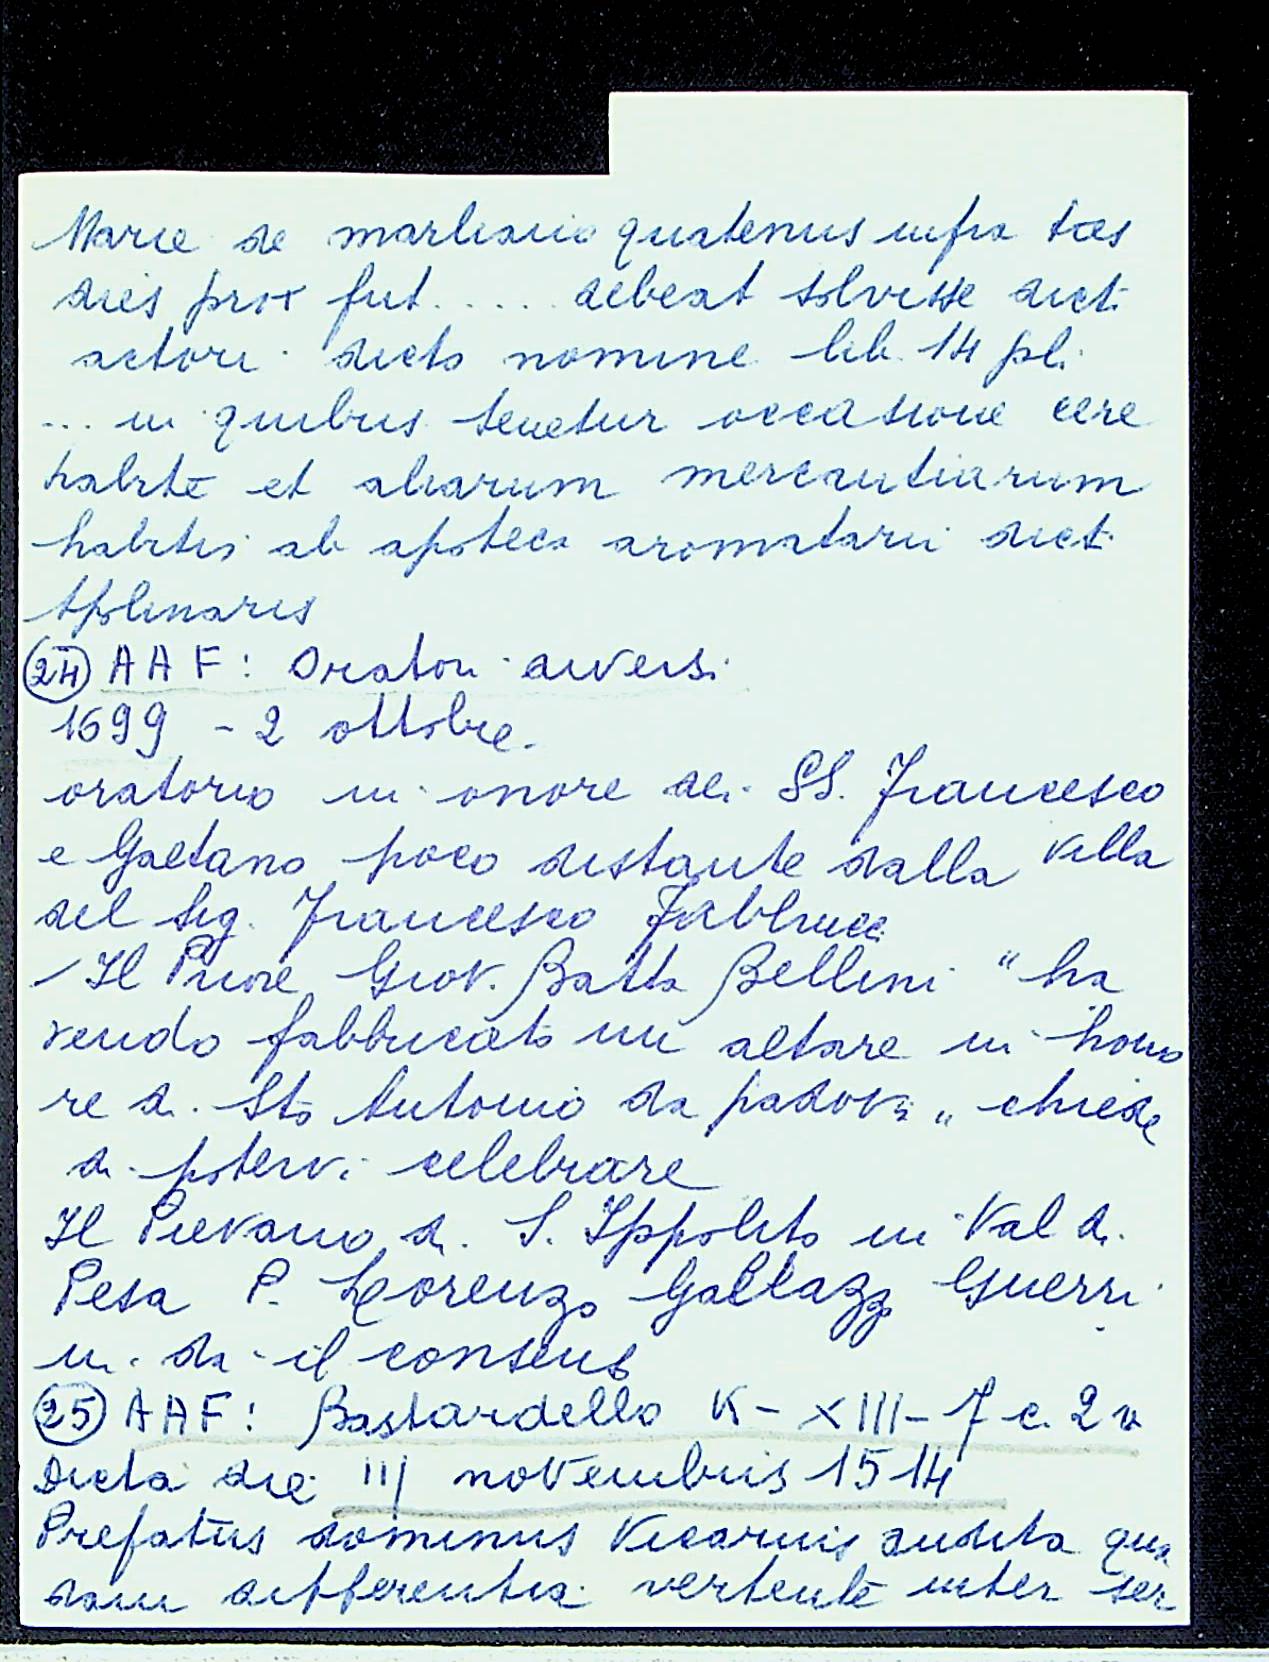 Marie de marliano quatenus infra tres
dies prox fut. .... debeat solvisse dict.
actori dicto nomine lib. 14 pl.
... in quibus tenetur occasione cere
habitē et aliarum mercantiarum
habitis ab apoteca aromatarii dict.
Apolinaris
(24) A A F: Oratori diversi
1699 - 2 ottobre.
oratorio in onore dei SS. Francesco
e Gaetano poco distante dalla villa
del Sig. Francesco Fabbrucci
Il Priore Giov. Batta Bellini "ha
vendo fabbricato un altare in hono
re di Sto Antonio da padova" chiede
di potervi celebrare
Il Pievano di S. Ippolito in Val di
Pesa P. Lorenzo Gallazzo Guerri
ni da il consenso
(25) A A F: Bastardello K - XIII - 7 c. 2 v
Dicta die III novembris 1514
Prefatus dominus Vicarius audita qua
dam differentia vertentē inter ser